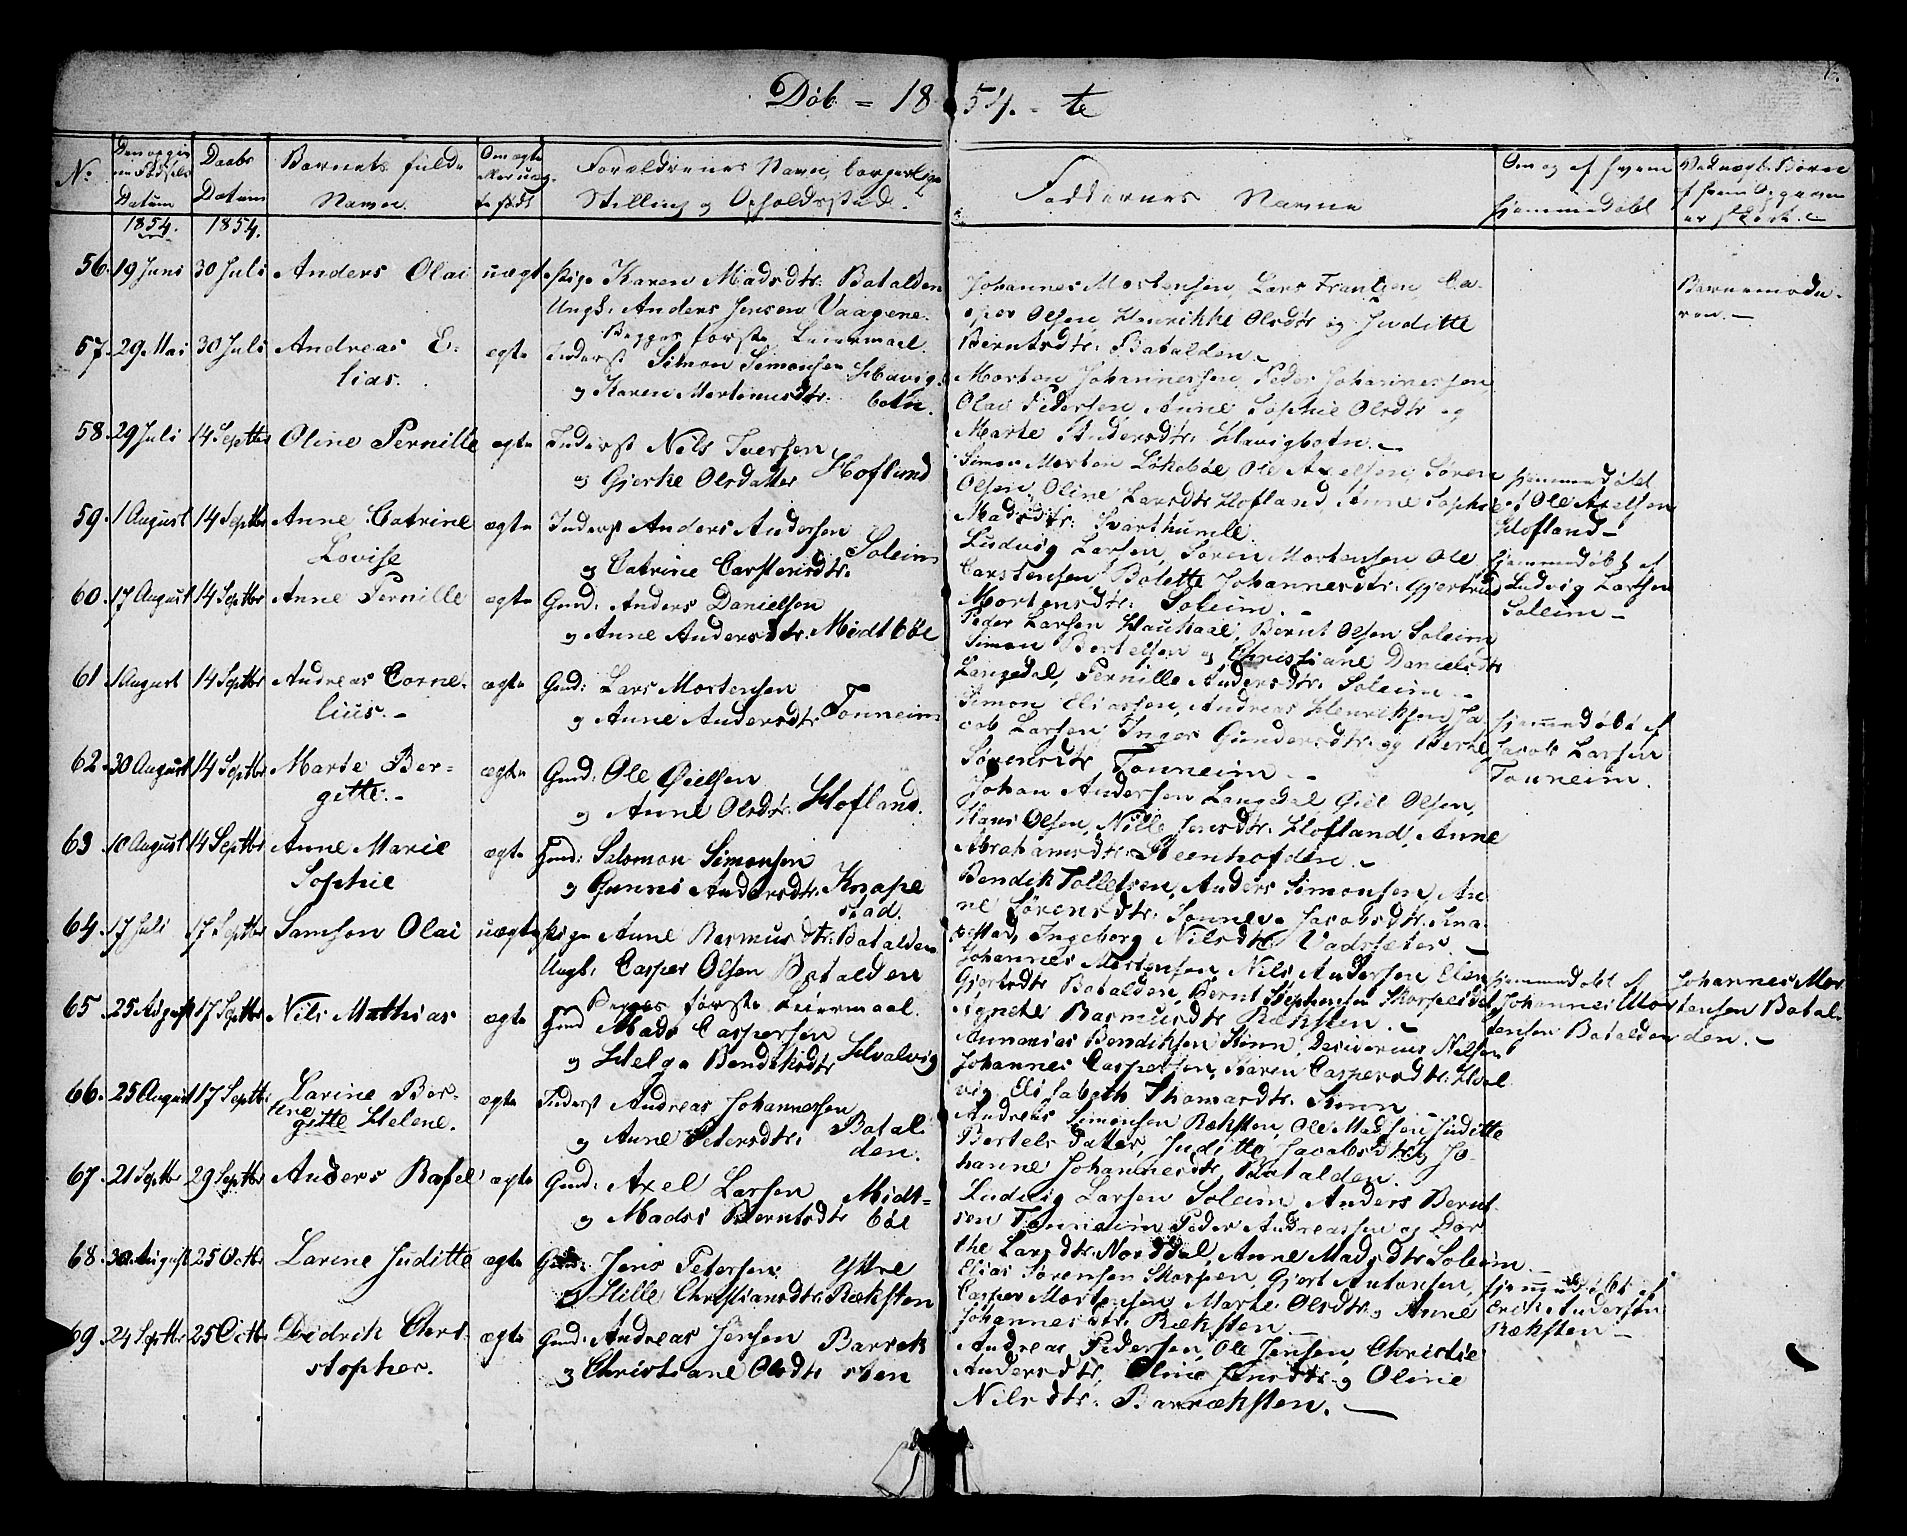 Døb = 18 54. - te
No.
Datum
Daabs Datum
Barnets fulde Navn.
Om ægte
Forældrenes Navn, borgerlige
Stilling og Opholdssted.
Faddernes Navne
Om og af hvem
hjemmedøbt
Ved uægte Børn
1854. 1854.
56. 19 Juni 30 Juli Anders Olai uægte Pige Karen Madsdtr: Batalden
Ungk: Anders Jensen Vaagene.
Begges første Leiermaal.
Johannes Mortensen, Lars Frantzen, Ca-
sper Olsen, Henrikke Olsdtr og Juditte
Berntsdtr: Batalden -
Barnemode-
ren. -
57. 29. Mai 30 Juli Andreas E-
lias.
ægte Inderst Simon Simonsen
og Karen Martinusdtr: Havig-
botn.
Morten Johannessen, Peder Johannessen,
Olai Pedersen, Anne Sophie Olsdtr og
Marte Andersdtr: Havigbotn. -
58. 29 Juli 14 Septbr Oline Pernille ægte Inderst Nils Iversen
og Gjerke Olsdatter Hofland
Simon Morten Løkebøe, Ole Axelsen, Søren
Olsen, Oline Larsdtr Hofland, Anne Sophie
Madsdtr: Svarthumle.
hjemmedøbt
af Ole Axelsen
Hofland -
59. 1 August 14 Septbr Anne Catrine
Lovise
ægte Inderst Anders Andersen
og Catrine Carstensdtr. Soleim
Ludvig Larsen, Søren Mortensen, Ole
Carstensen, Bolette Johannesdtr: Gjertrud
Mortensdtr: Soleim. -
hjemmedøbt af
Ludvig Larsen
Soleim -
60. 17 August 14 Septbr Anne Pernille ægte Gmd: Anders Danielsen
og Anne Andersdtr. Midtbøe
Peder Larsen Haukaae, Bernt Olsen Soleim
Simon Bertelsen og Christiane Danielsdtr
Langedal, Pernille Andersdtr. Soleim -
61. 1 August 14 Septbr Andreas Corne-
lius. -
ægte Gmd: Lars Mortensen
og Anne Andersdtr. Tonneim
Simon Eliassen, Andreas Henriksen, Ja-
cob Larsen, Inger Gundersdtr. og Berte
Sørensdtr Tonneim -
hjemmedøbt af
Jacob Larsen
Tonneim.
62. 30 August 14 Septbr Marte Ber-
gitte. -
ægte Gmd: Ole Gielsen
og Anne Olsdtr. Hofland.
Johan Andersen Langedal, Giel Olsen,
Hans Olsen, Nille Jensdtr. Hofland, Anne
Abrahamsdtr: Steenhofden. -
63 10 August 14 Septbr Anne Marie
Sophie
ægte Gmd: Salomon Simonsen
og Gunni Andersdtr. Knape-
stad.
Bendik Tollefsen, Anders Simonsen, An-
ne Sørensdtr. Jacobsdtr. Kna-
pestad, Ingeborg Nilsdtr Vadsæter. -
64. 17 Juli 17 Septbr Samson Olai uægte Pige Anne Rasmusdtr. Batalden
Ungk: Casper Olsen Batalden
Begges første Leiermaal.
Johannes Mortensen, Nils Andersen, Elen
Gjertsdtr Batalden, Bernt Stephensen
Agnete Rasmusdtr Ræksten. -
hjemmedøbt af
Johannes Mor-
tensen Batalden
Johannes Mor-
tensen Batal-
den. -
65 25 August 17 Septbr Nils Mathias ægte Gmd Mads Caspersen
og Helga Bendiksdtr Hvalvig
Annanias Bendiksen Kinn, Desiderius Nilsen
Johannes Caspersen, Karen Caspersdtr. Hval-
vig, Elisabeth Thomasdtr. Kinn
66. 25 August 17 Septbr Larine Ber-
gitte Helene.
ægte Inderst Andreas Johannessen
og Anne Petersdtr: Batal-
den.
Andreas Simonsen Ræksten, Ole Madsen, Juditte
Bertels Datter, Juditte Jacobsdtr. og Jo-
hanne Johannesdtr. Batalden.
67. 21 Septbr 29 Septbr Anders Rafel ægte Gmd: Axel Larsen
og Madsi Berntsdtr Midt-
bøe
Ludvig Larsen Soleim, Anders Bernt-
sen Tonneim, Peder Andreassen og Dor-
the Larsdtr. Norddal, Anne Madsdtr Soleim. -
68. 30 August 25 Octbr Larine Juditte ægte Gmd: Jens Petersen Yttre
og Hille Christiansdtr: Ræksten
Elias Sørensen Skorpen, Gjert Antonsen,
Casper Mortensen, Marte Olsdtr og Anne
Johannesdtr. Ræksten -
hjemmedøbt af
Andersen
Ræksten -
69. 24 Septbr 25 Octbr Didrik Chri-
stopher.
ægte Gmd: Andreas Jensen Barræk-
og Christiane Olsdtr sten
Andreas Pedersen, Ole Jensen, Christie
Andersdtr, Oline Jensdtr og Oline
Nilsdtr: Barræksten. -